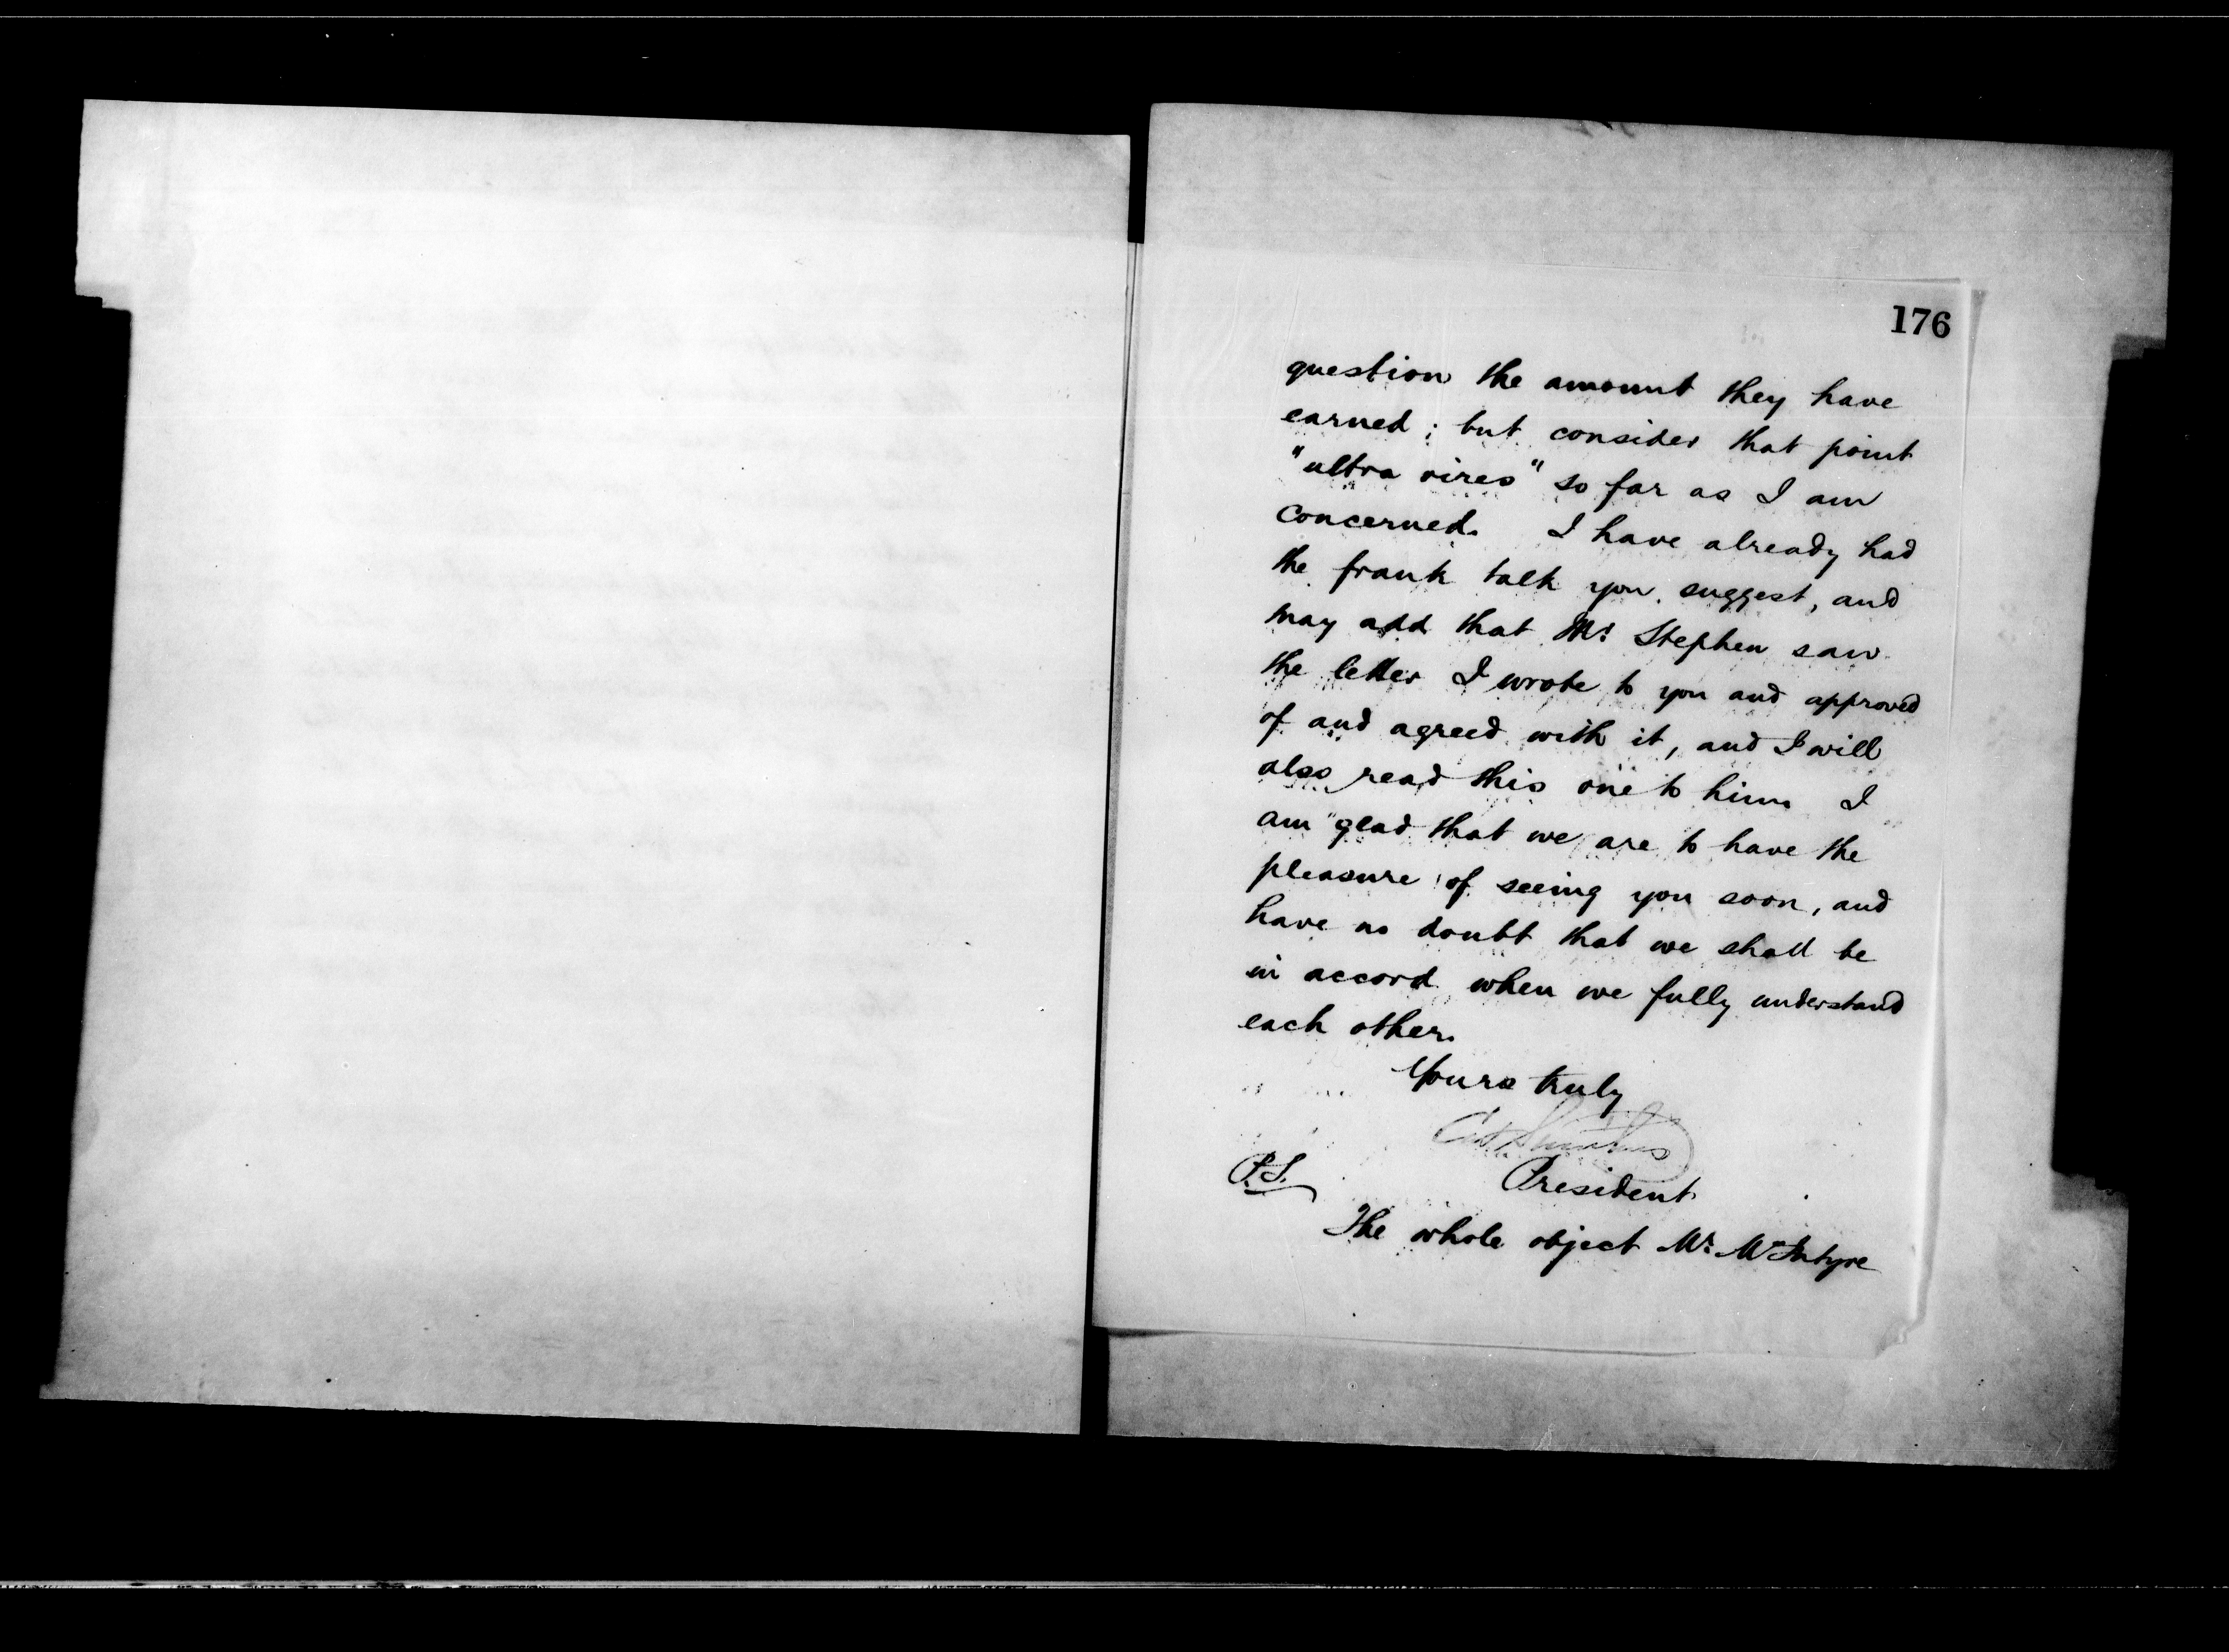 176
question the amount they have
earned; but consider that point
"ultra vires" so far as I am
concerned. I have already had
the frank talk you suggest, and
may add that Mr. Stephen saw
the letter I wrote to you and approved
of and agreed with it, and I will
also read this one to him. I
am glad that we are to have the
pleasure of seeing you soon, and
have no doubt that we shall be
in accord when we fully understand
each other.
Yours truly
President
P.S.
The whole object Mr. McIntyre